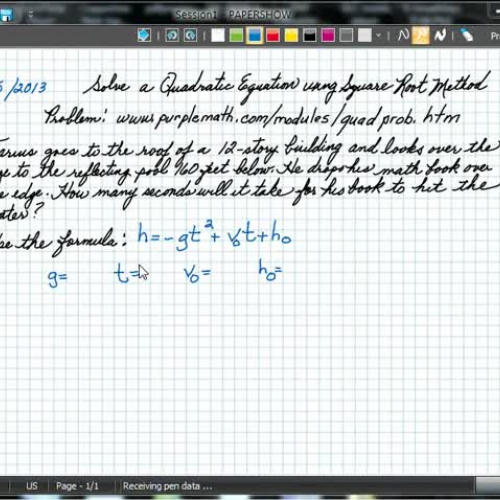 Session1 - PAPERSHOW
Pr
/2013 Solve a Quadratic Equation using Square Root Method
Problem: www.purplemath.com/modules/quadprob.htm
goes to the roof of a 12-story building and looks over the
to the reflecting pool 160 feet below. He drops his math book over
edge. How many seconds will it take for his book to hit the
ater?
the formula: h = -gt² + v₀t + h₀
g= t= v₀= h₀=
US Page - 1/1 Receiving pen data ...